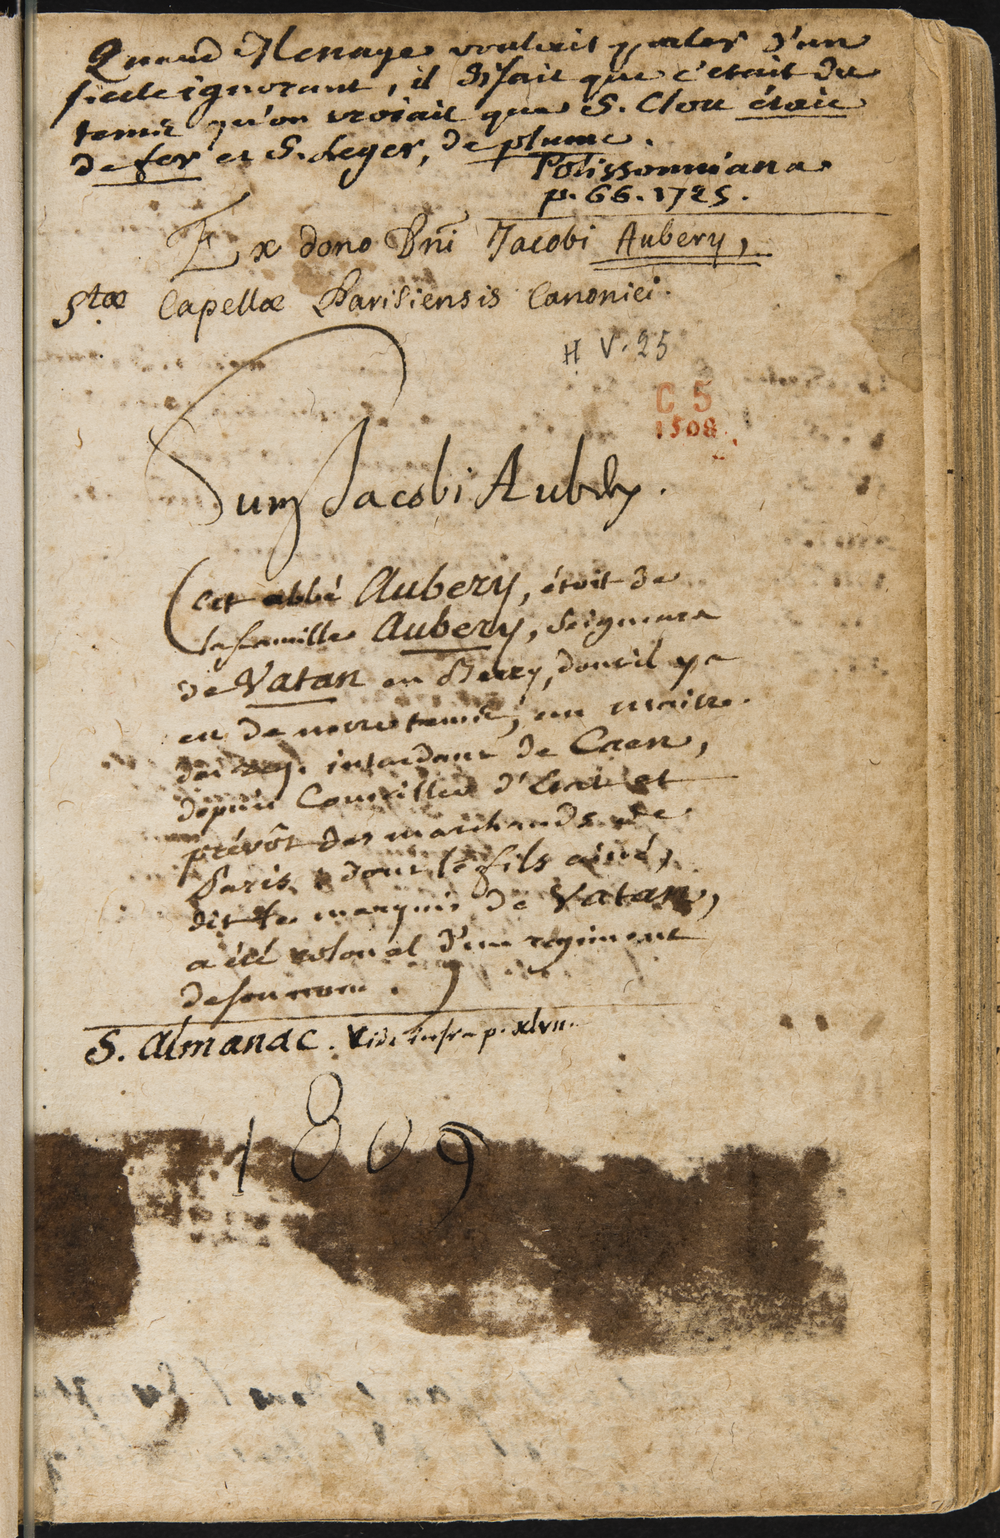 Quand Menage vouloit parler d'un
siecle ignorant, il disait que c'etait du
tems qu'on croiait que S. Clou étoit
de fer et S. Leger, de plume.
Polissonniana
p. 66. 1725.
Ex dono Dni Jacobi Aubery,
Stæ Capellæ Parisiensis Canonici.
H V. 25
C 5
1508
Sum Jacobi Aubery.
(cet abbé Aubery, étoit de
la famille Aubery, seigneurs
de Vatan en Berry, dont il y a
eu de notre tems, un maitre
des req. intendant de Caen,
depuis Conseiller d'Etat et
prévôt des marchands de
Paris, dont le fils ainé,
dit le marquis de Vatan,
a été colonel d'un regiment
de son nom. )
S. Almanac. Vide infra p. xlvii.
1809